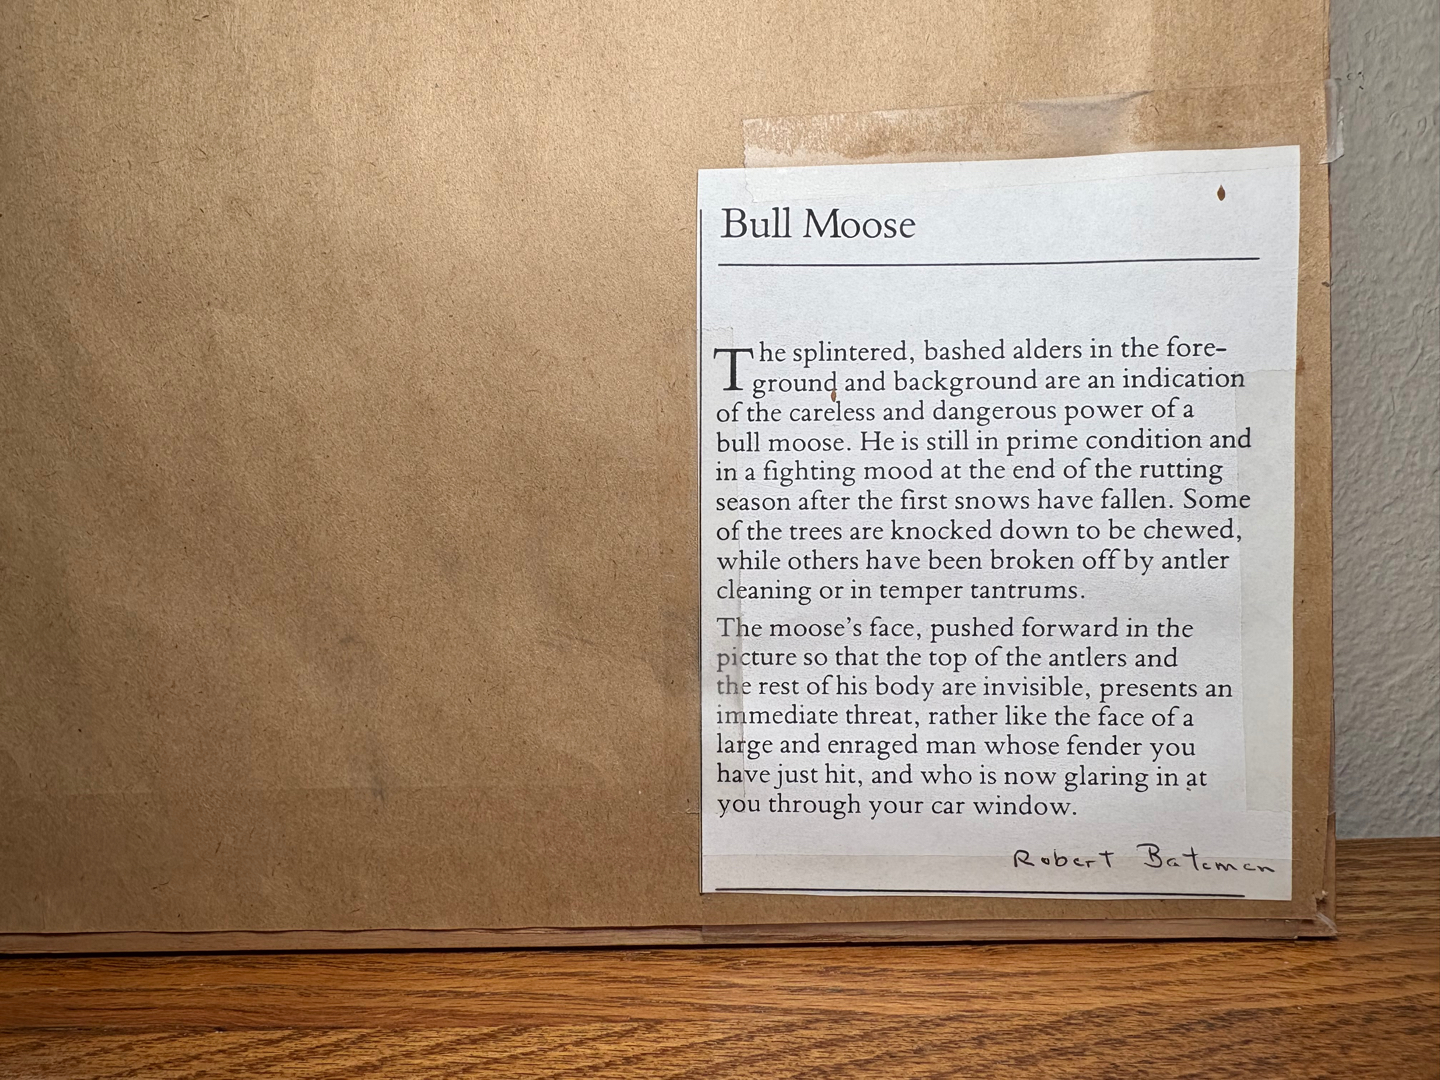 Bull Moose
The splintered, bashed alders in the fore-
ground and background are an indication
of the careless and dangerous power of a
bull moose. He is still in prime condition and
in a fighting mood at the end of the rutting
season after the first snows have fallen. Some
of the trees are knocked down to be chewed,
while others have been broken off by antler
cleaning or in temper tantrums.
The moose’s face, pushed forward in the
picture so that the top of the antlers and
the rest of his body are invisible, presents an
immediate threat, rather like the face of a
large and enraged man whose fender you
have just hit, and who is now glaring in at
you through your car window.
Robert Bateman